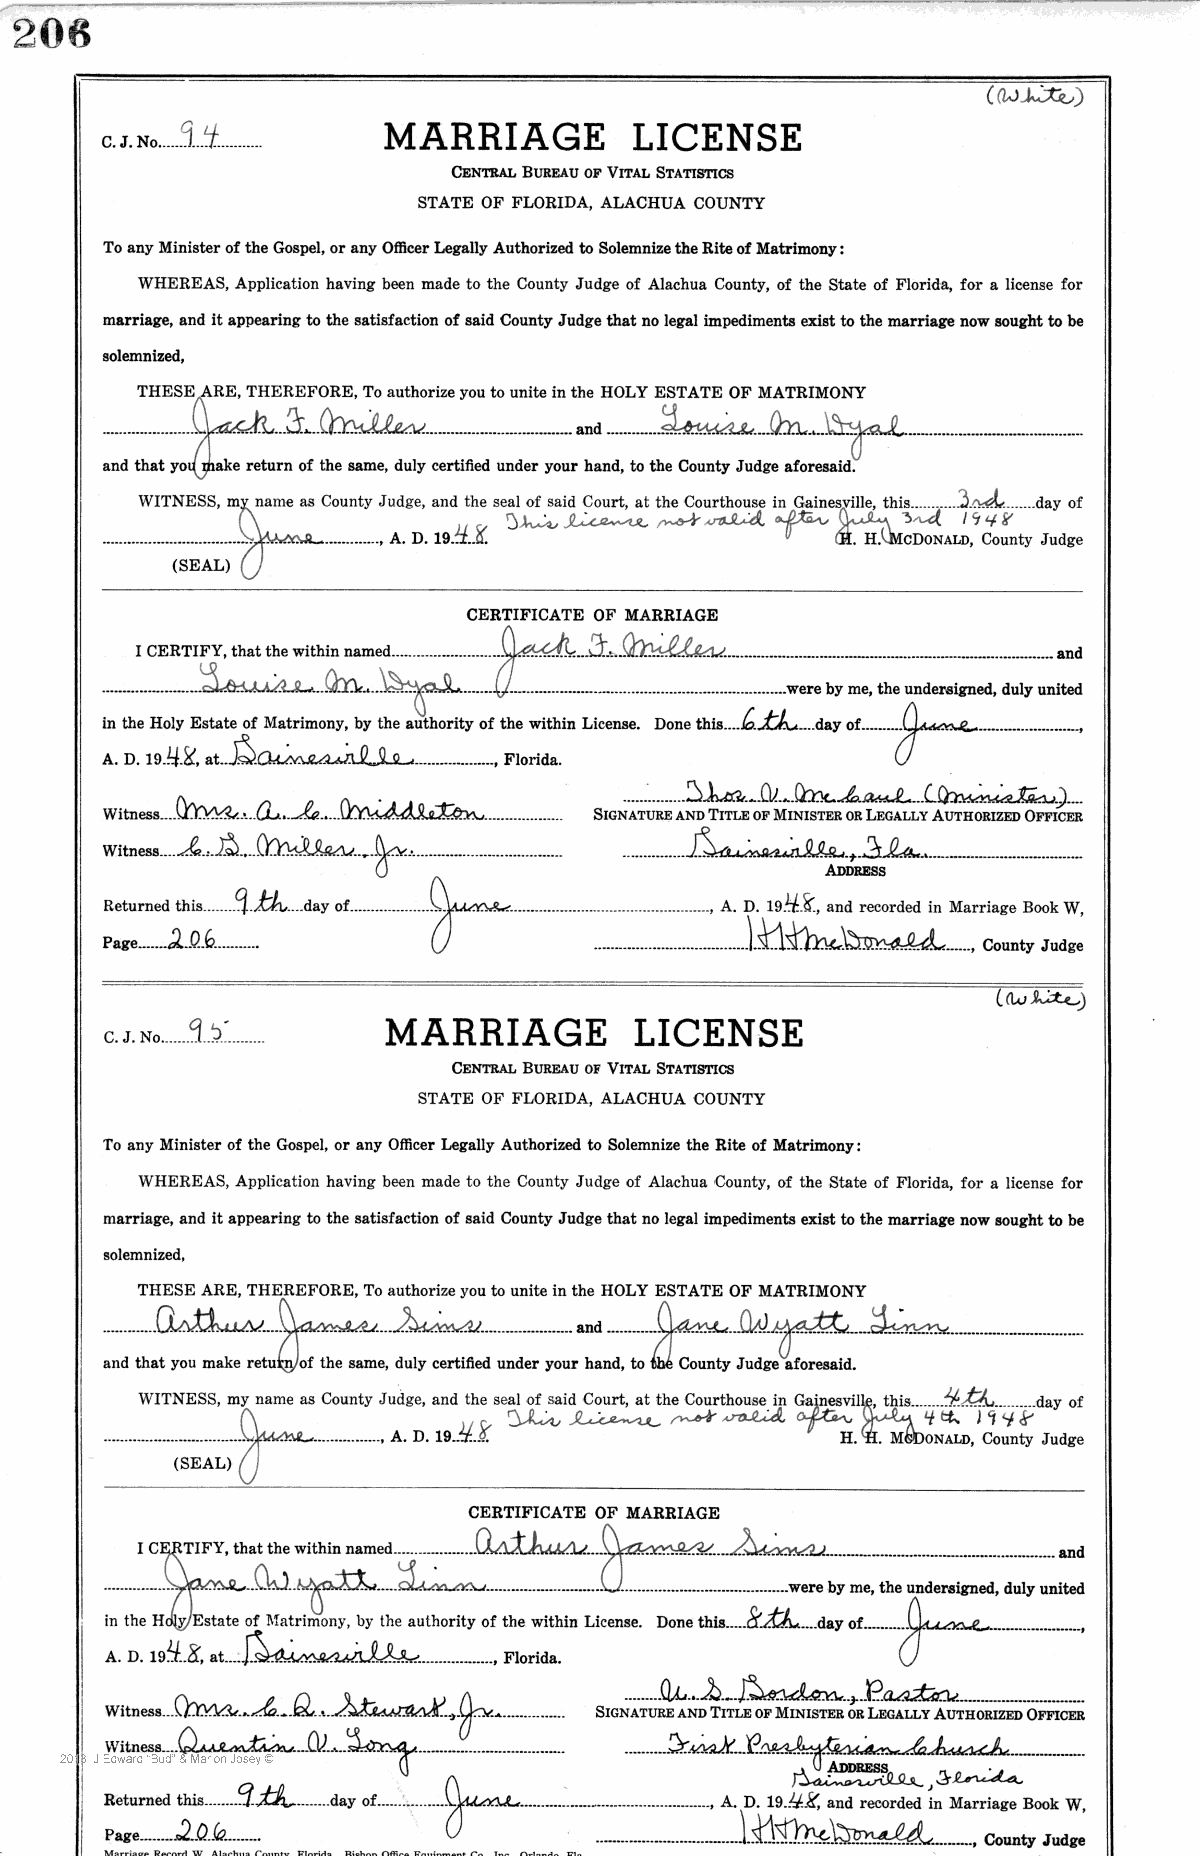 206
(White)
C. J. No. 94
MARRIAGE LICENSE
CENTRAL BUREAU OF VITAL STATISTICS
STATE OF FLORIDA, ALACHUA COUNTY
To any Minister of the Gospel, or any Officer Legally Authorized to Solemnize the Rite of Matrimony:
WHEREAS, Application having been made to the County Judge of Alachua County, of the State of Florida, for a license for
marriage, and it appearing to the satisfaction of said County Judge that no legal impediments exist to the marriage now sought to be
solemnized,
THESE ARE, THEREFORE, To authorize you to unite in the HOLY ESTATE OF MATRIMONY
Jack F. Miller and Louise M. Dyal
and that you make return of the same, duly certified under your hand, to the County Judge aforesaid.
WITNESS, my name as County Judge, and the seal of said Court, at the Courthouse in Gainesville, this 3rd day of
This license not valid after July 3rd 1948
June, A. D. 1948. H. H. MCDONALD, County Judge
(SEAL)
CERTIFICATE OF MARRIAGE
I CERTIFY, that the within named Jack F. Miller and
Louise M. Dyal were by me, the undersigned, duly united
in the Holy Estate of Matrimony, by the authority of the within License. Done this 6th day of June,
A. D. 1948, at Gainesville, Florida.
Thos. V. McCaul (Minister)
Witness Mrs. A. C. Middleton SIGNATURE AND TITLE OF MINISTER OR LEGALLY AUTHORIZED OFFICER
Witness C. G. Miller, Jr. Gainesville, Fla.
ADDRESS
Returned this 9th day of June, A. D. 1948, and recorded in Marriage Book W,
Page 206 H H McDonald, County Judge
(White)
C. J. No. 95
MARRIAGE LICENSE
CENTRAL BUREAU OF VITAL STATISTICS
STATE OF FLORIDA, ALACHUA COUNTY
To any Minister of the Gospel, or any Officer Legally Authorized to Solemnize the Rite of Matrimony:
WHEREAS, Application having been made to the County Judge of Alachua County, of the State of Florida, for a license for
marriage, and it appearing to the satisfaction of said County Judge that no legal impediments exist to the marriage now sought to be
solemnized,
THESE ARE, THEREFORE, To authorize you to unite in the HOLY ESTATE OF MATRIMONY
Arthur James Sims and Jane Wyatt Linn
and that you make return of the same, duly certified under your hand, to the County Judge aforesaid.
WITNESS, my name as County Judge, and the seal of said Court, at the Courthouse in Gainesville, this 4th day of
This license not valid after July 4th 1948
June, A. D. 1948. H. H. MCDONALD, County Judge
(SEAL)
CERTIFICATE OF MARRIAGE
I CERTIFY, that the within named Arthur James Sims and
Jane Wyatt Linn were by me, the undersigned, duly united
in the Holy Estate of Matrimony, by the authority of the within License. Done this 8th day of June,
A. D. 1948, at Gainesville, Florida.
U. S. Gordon, Pastor
Witness Mrs. C. R. Stewart, Jr. SIGNATURE AND TITLE OF MINISTER OR LEGALLY AUTHORIZED OFFICER
Witness Quentin V. Long First Presbyterian Church
2018 J Edward "Bud" & Marion Josey ©
ADDRESS
Gainesville, Florida
Returned this 9th day of June, A. D. 1948, and recorded in Marriage Book W,
Page 206 H H McDonald, County Judge
Marriage Record W, Alachua County, Florida. Bishop Office Equipment Co., Inc., Orlando, Fla.